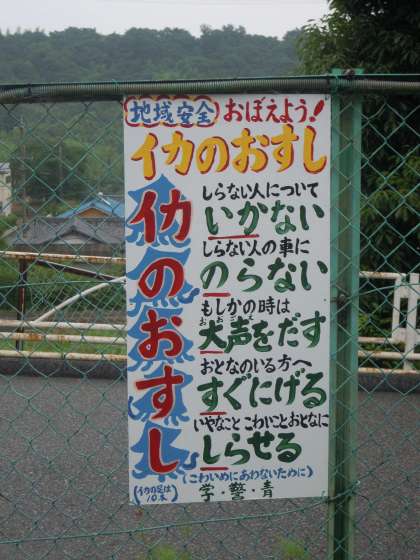 地域安全 おぼえよう!
イカのおすし
イカのおすし
しらない人について
いかない
しらない人の車に
のらない
もしかの時は
おおごえ
大声をだす
おとなのいる方へ
すぐにげる
いやなこと こわいことおとなに
しらせる
(こわいめにあわないために)
(イカの足は
10本)
学・警・青